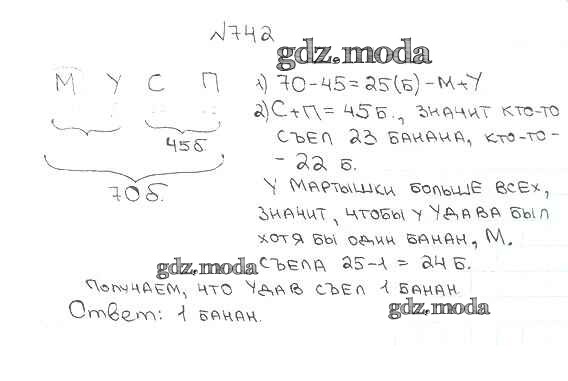 №742
gdz.moda
М У С П
1) 70-45=25(Б)-М+У
2) С+П=45Б., ЗНАЧИТ КТО-ТО
СЪЕЛ 23 БАНАНА, КТО-ТО-
- 22 Б.
45Б
70Б.
У МАРТЫШКИ БОЛЬШЕ ВСЕХ,
ЗНАЧИТ, ЧТОБЫ У УДАВА БЫЛ
ХОТЯ БЫ ОДИН БАНАН, М.
gdz.moda
СЪЕЛА 25-1=24Б.
ПОЛУЧАЕМ, ЧТО УДАВ СЪЕЛ 1 БАНАН
Ответ: 1 БАНАН.
gdz.moda